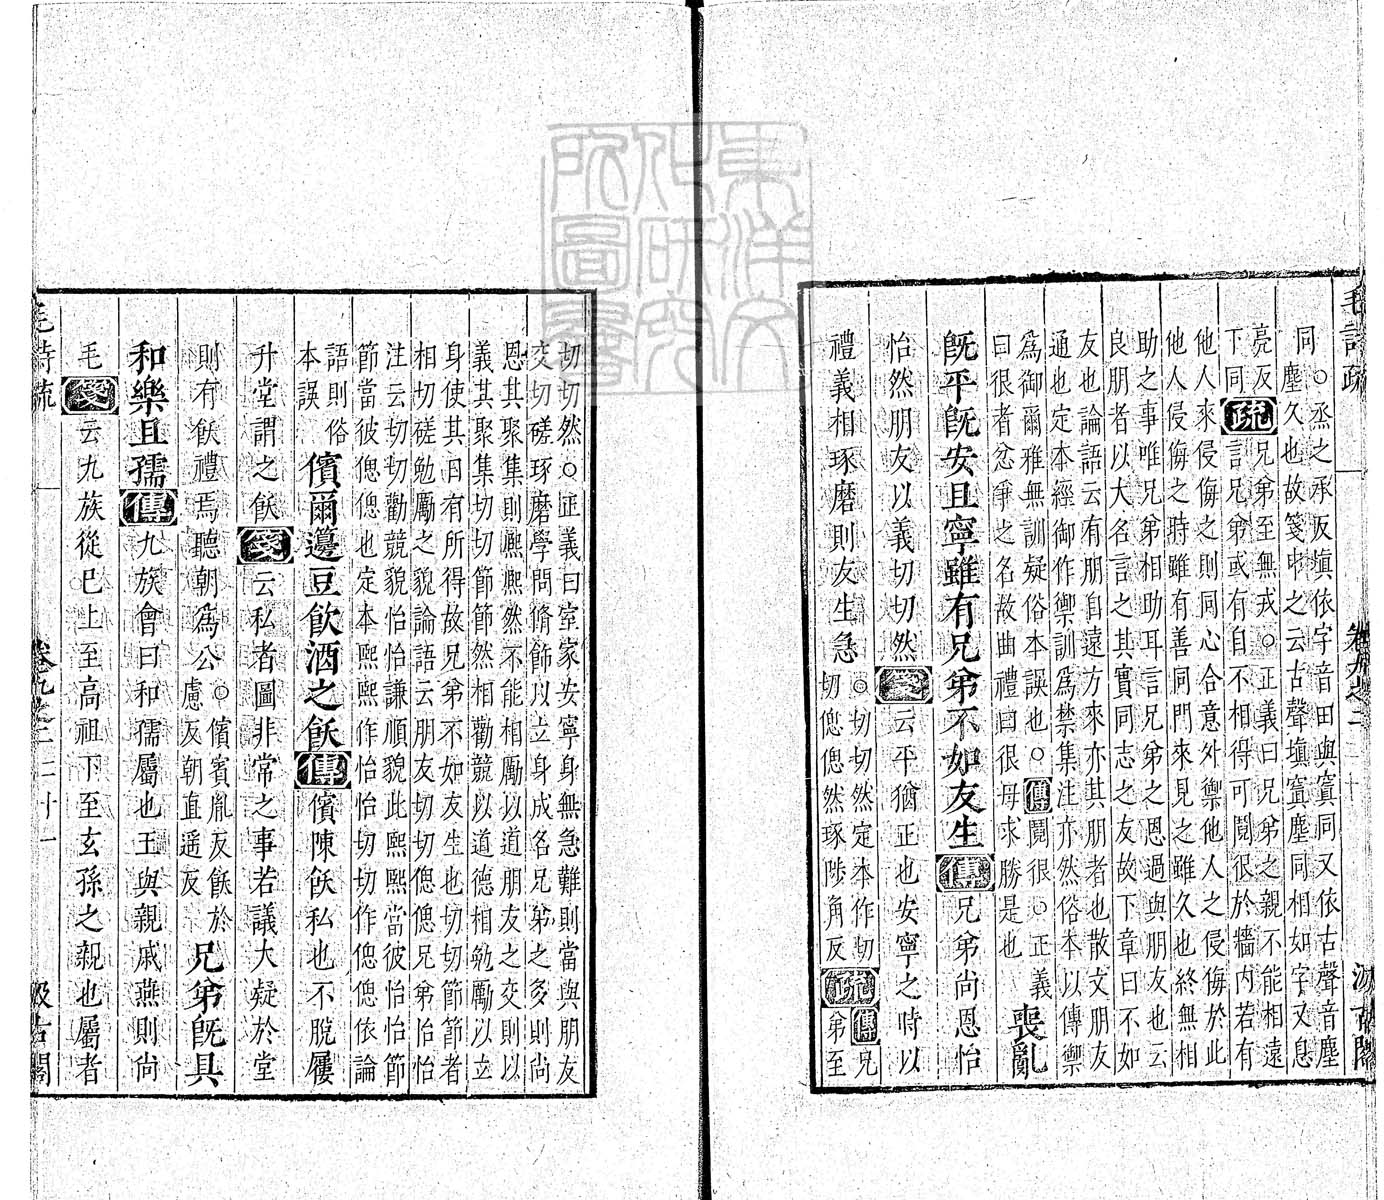 毛詩疏 卷九之二 二十 汲古閣
同○烝之承反塡依字音田與寘同又依古聲音塵
塵久也故箋申之云古聲塡寘塵同相如字又息
亮反兄弟至無戎○正義曰兄弟之親不能相遠
下同疏言兄弟或有自不相得可鬩很於牆內若有
他人來侵侮之則同心合意外禦他人之侵侮於此
他人侵侮之時雖有善同門來見之雖久也終無相
助之事唯兄弟相助耳言兄弟之恩過與朋友也云
良朋者以大名言之其實同志之友故下章曰不如
友也論語云有朋自遠方來亦其朋者也散文朋友
通也定本經御作禦訓爲禁集注亦然俗本以傳禦
爲御爾雅無訓疑俗本誤也○傳鬩很○正義
曰很者忿爭之名故曲禮曰很毋求勝是也
喪亂
旣平旣安且寧雖有兄弟不如友生傳兄弟尚恩怡
怡然朋友以義切切然箋云平猶正也安寧之時以
禮義相琢磨則友生急
○切切然定本作切
切偲偲然琢陟角反
疏
傳兄
弟至
切切然○正義曰室家安寧身無急難則當與朋友
交切磋琢磨學問脩飾以立身成名兄弟之多則尚
恩其聚集則熈熈然不能相勵以道朋友之交則以
義其聚集切切節節然相勸競以道德相勉勵以立
身使其日有所得故兄弟不如友生也切切節節者
相切磋勉勵之貌論語云朋友切切偲偲兄弟怡怡
注云切切勸競貌怡怡謙順貌此熙熙當彼怡怡節
節當彼偲偲也定本熙熙作怡怡切切作偲偲依論
語則俗
本誤
儐爾籩豆飮酒之飫傳儐陳飫私也不脫屨
升堂謂之飫箋云私者圖非常之事若議大疑於堂
則有飫禮焉聽朝爲公
○儐賓胤反飫於
慮反朝直遥反
兄弟旣具
和樂且孺傳九族會曰和孺屬也王與親戚燕則尚
毛箋云九族從巳上至高祖下至玄孫之親也屬者
毛詩疏 卷九之二 二十一 汲古閣
東洋文化研究所圖書